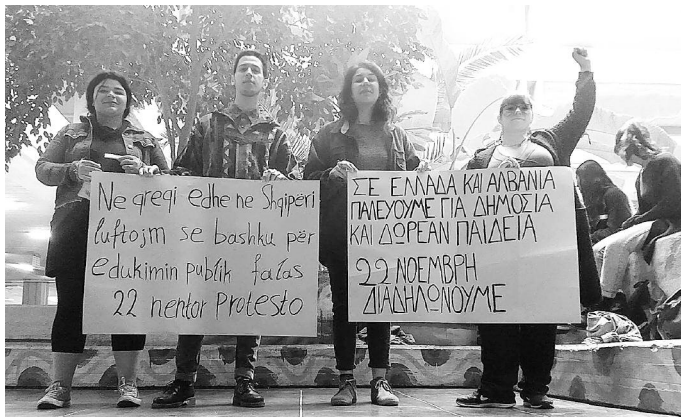 Ne greqi edhe ne Shqipëri
luftojm se bashku për
edukimin publik falas
22 nentor Protesto
ΣΕ ΕΛΛΑΔΑ ΚΑΙ ΑΛΒΑΝΙΑ
ΠΑΛΕΥΟΥΜΕ ΓΙΑ ΔΗΜΟΣΙΑ
ΚΑΙ ΔΩΡΕΑΝ ΠΑΙΔΕΙΑ
22 ΝΟΕΜΒΡΗ
ΔΙΑΔΗΛΩΝΟΥΜΕ